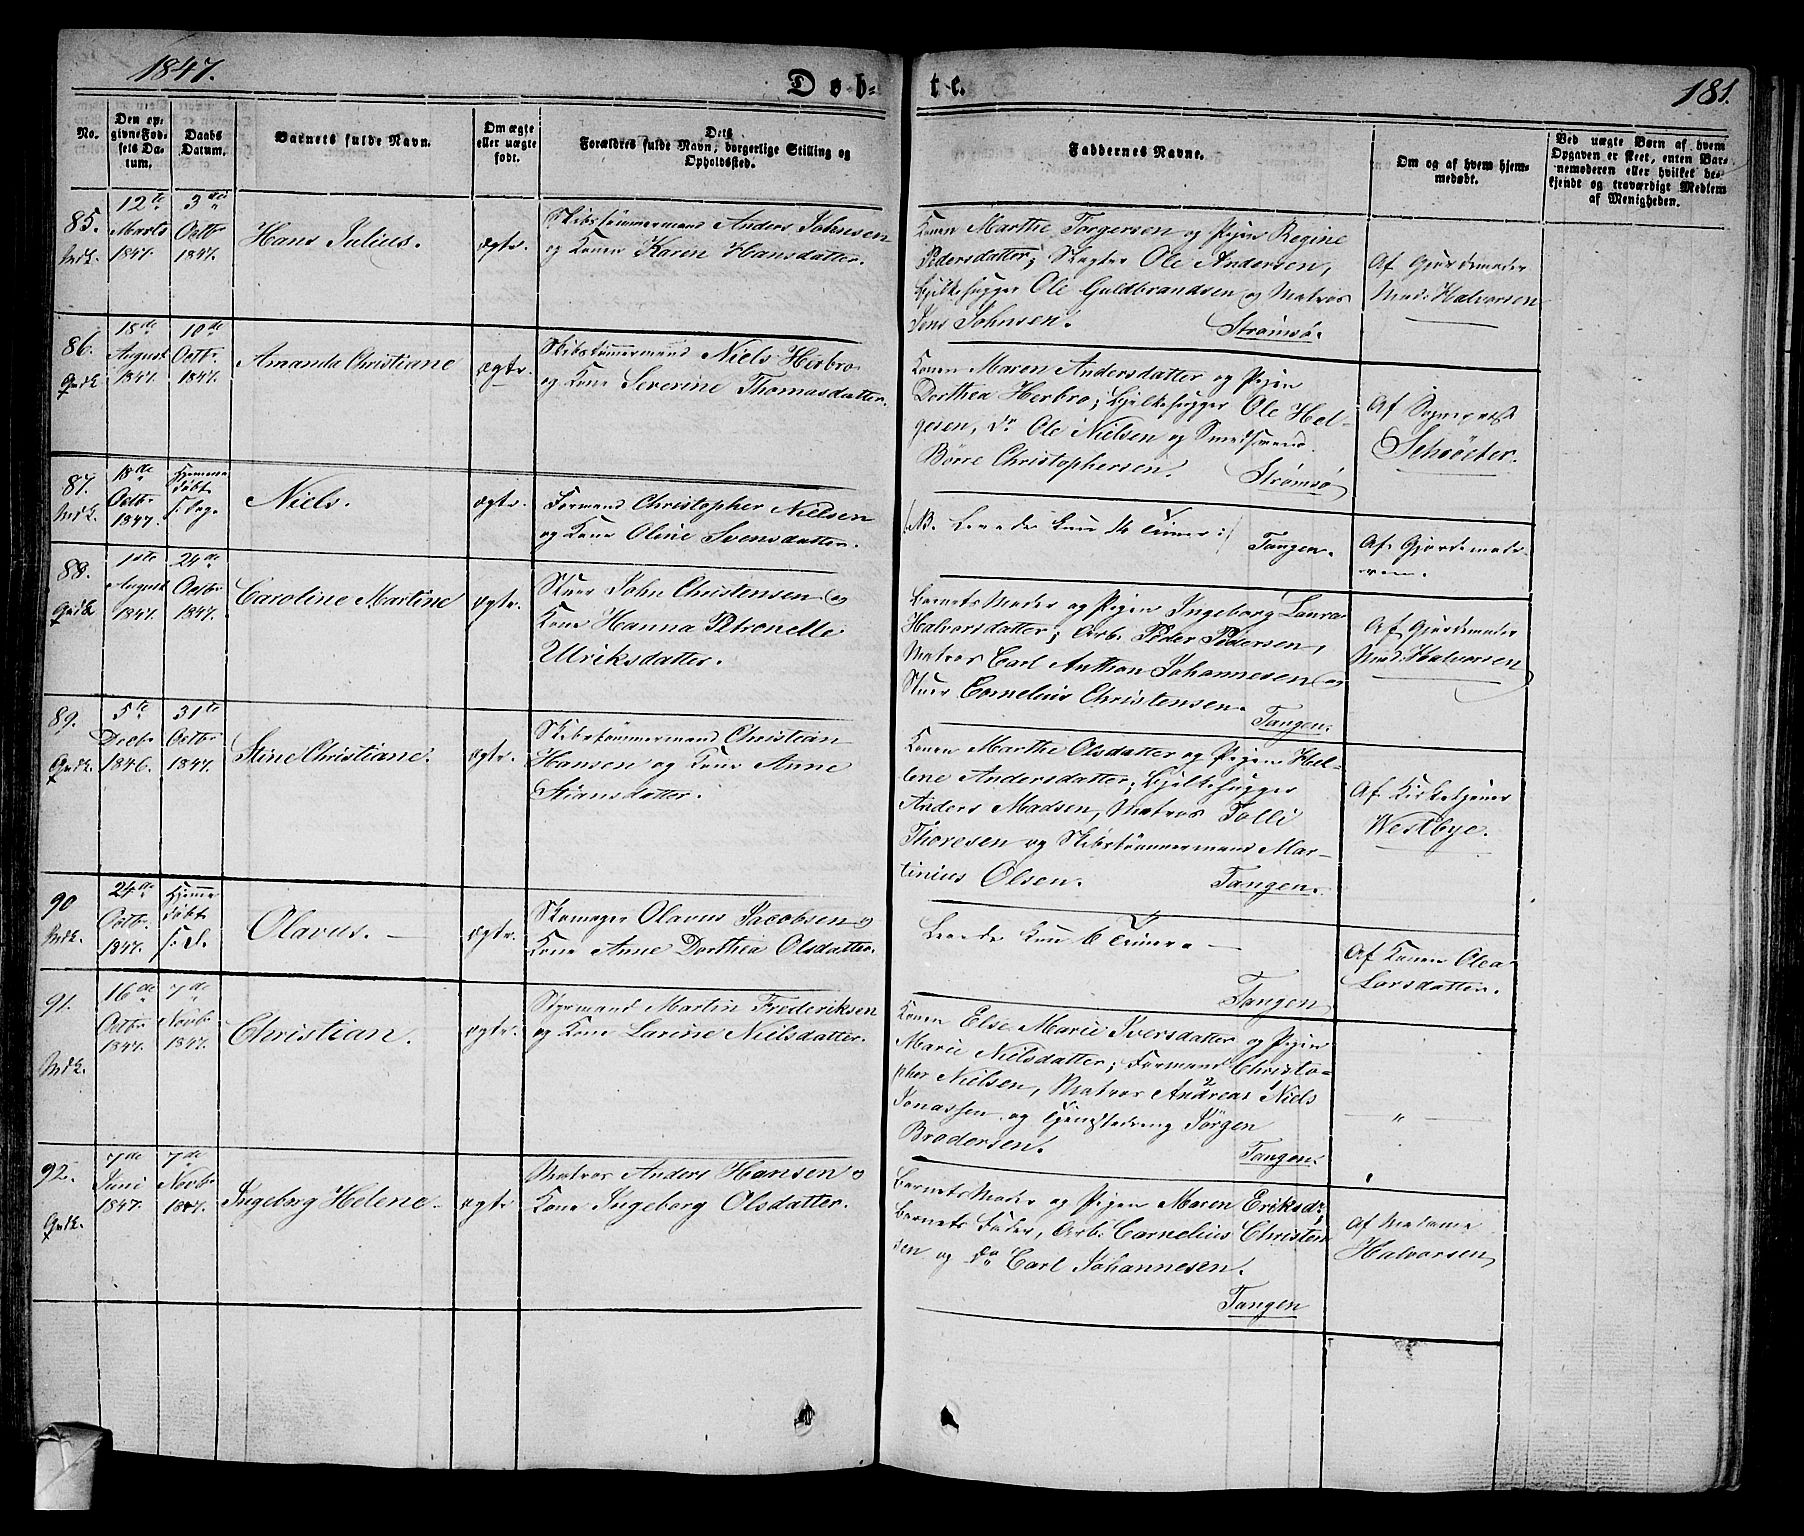 1847.
Døb-
te.
181.
No.
Den op-
givne Fød-
sels Da-
tum.
Daabs
Datum.
Barnets fulde Navn.
Om ægte
eller uægte
født.
Dets
Forældres fulde Navn, borgerlige Stilling og
Opholdssted.
Faddernes Navne.
Om og af hvem hjem-
medøbt.
Ved uægte Børn af hvem
Opgaven er skeet, enten Bar-
nemoderen eller hvilket be-
kjendt og troværdigt Medlem
af Menigheden.
85.
Mdk.
12te
Marts
1847.
3die
Octbr
1847.
Hans Julius.
ægte.
Skibstømmermand Anders Johnsen
og Konen Karen Hansdatter.
Konen Marthe Torgersen og Pigen Regine
Pedersdatter; Skagtes Ole Andersen,
Bjelkehugger Ole Guldbrandsen og Matros
Jens Johnsen.
Strømsø.
Af Gjordemoder
Mad: Halvorsen
86.
Qvdk
18de
August
1847.
10de
Octbr
1847.
Amanda Christiane
ægte.
Skibstømmermand Niels Herbro
og Kone Severine Thomasdatter.
Konen Maren Andersdatter og Pigen
Dorthea Herbro; Bjelkehugger Ole Hel-
gesen, do Ole Nielsen og Smedsvend
Børre Christophersen.
Strømsø
Af Sognepræst
Schrøeter.
87.
Mdk.
18de
Octbr
1847.
Hjemme
døbt
s: Dag.
Niels.
ægte.
Formand Christopher Nielsen
og Kone Oline Svensdatter.
(NB. Levede kun 14 Timer:)
Tangen.
Af Gjordemode-
ren.
88.
Qvdk
1ste
August
1847.
24de
Octbr
1847.
Caroline Martine
ægte.
Stuer John Christensen og
Kone Hanna Petronelle
Ulriksdatter.
Barnets Moder og Pigen Ingeborg Laura
Halvorsdatter; Arb. Peder Pedersen,
Matros Carl Anthon Johannesen og
Stuer Cornelius Christensen.
Tangen.
Af Gjordemoder
Mad: Halvorsen
89.
Qvdk.
5te
Decbr
1846.
31te
Octbr
1847.
Stine Christiane.
ægte.
Skibstømmermand Christian
Hansen og Kone Anne
Stiansdatter.
Konen Marthe Olsdatter og Pigen Hel-
lene Andersdatter; Bjelkehugger
Anders Madsen, Matros Tolli
Thoresen og Skibstømmermand Mar-
tinius Olsen.
Tangen.
Af Kirketjener
Westbye.
90
Mdk.
24de
Octbr.
1847.
Hjemme
døbt
s: D.
Olavus. —
ægte.
Skomager Olavus Jacobsen og
Kone Anne Dorthea Olsdatter.
Levede kun 6 Timer —
Tangen
Af Konen Olea
Larsdatter.
91.
Mdk.
16de
Octbr
1847.
7de
Novbr
1847.
Christian.
ægte.
Styrmand Martin Frederiksen
og Kone Larine Nielsdatter.
Konen Else Marie Iversdatter og Pigen
Marie Nielsdatter; Formand Christo-
pher Nielsen, Matros Andreas 2 Niels 1
Jonassen og Tjenestedreng Jørgen
Brodersen.
Tangen.
— " —
92.
Qvdk.
7de
Juni
1847.
7de
Novbr
1847.
Ingeborg Helene.
ægte
Matros Anders Hansen og
Kone Ingeborg Olsdatter.
Barnets Moder og Pigen Maren Eriksdr;
Barnets Fader, Arb: Cornelius Christen-
sen og do Carl Johannesen.
Tangen
Af Madame
Halvorsen